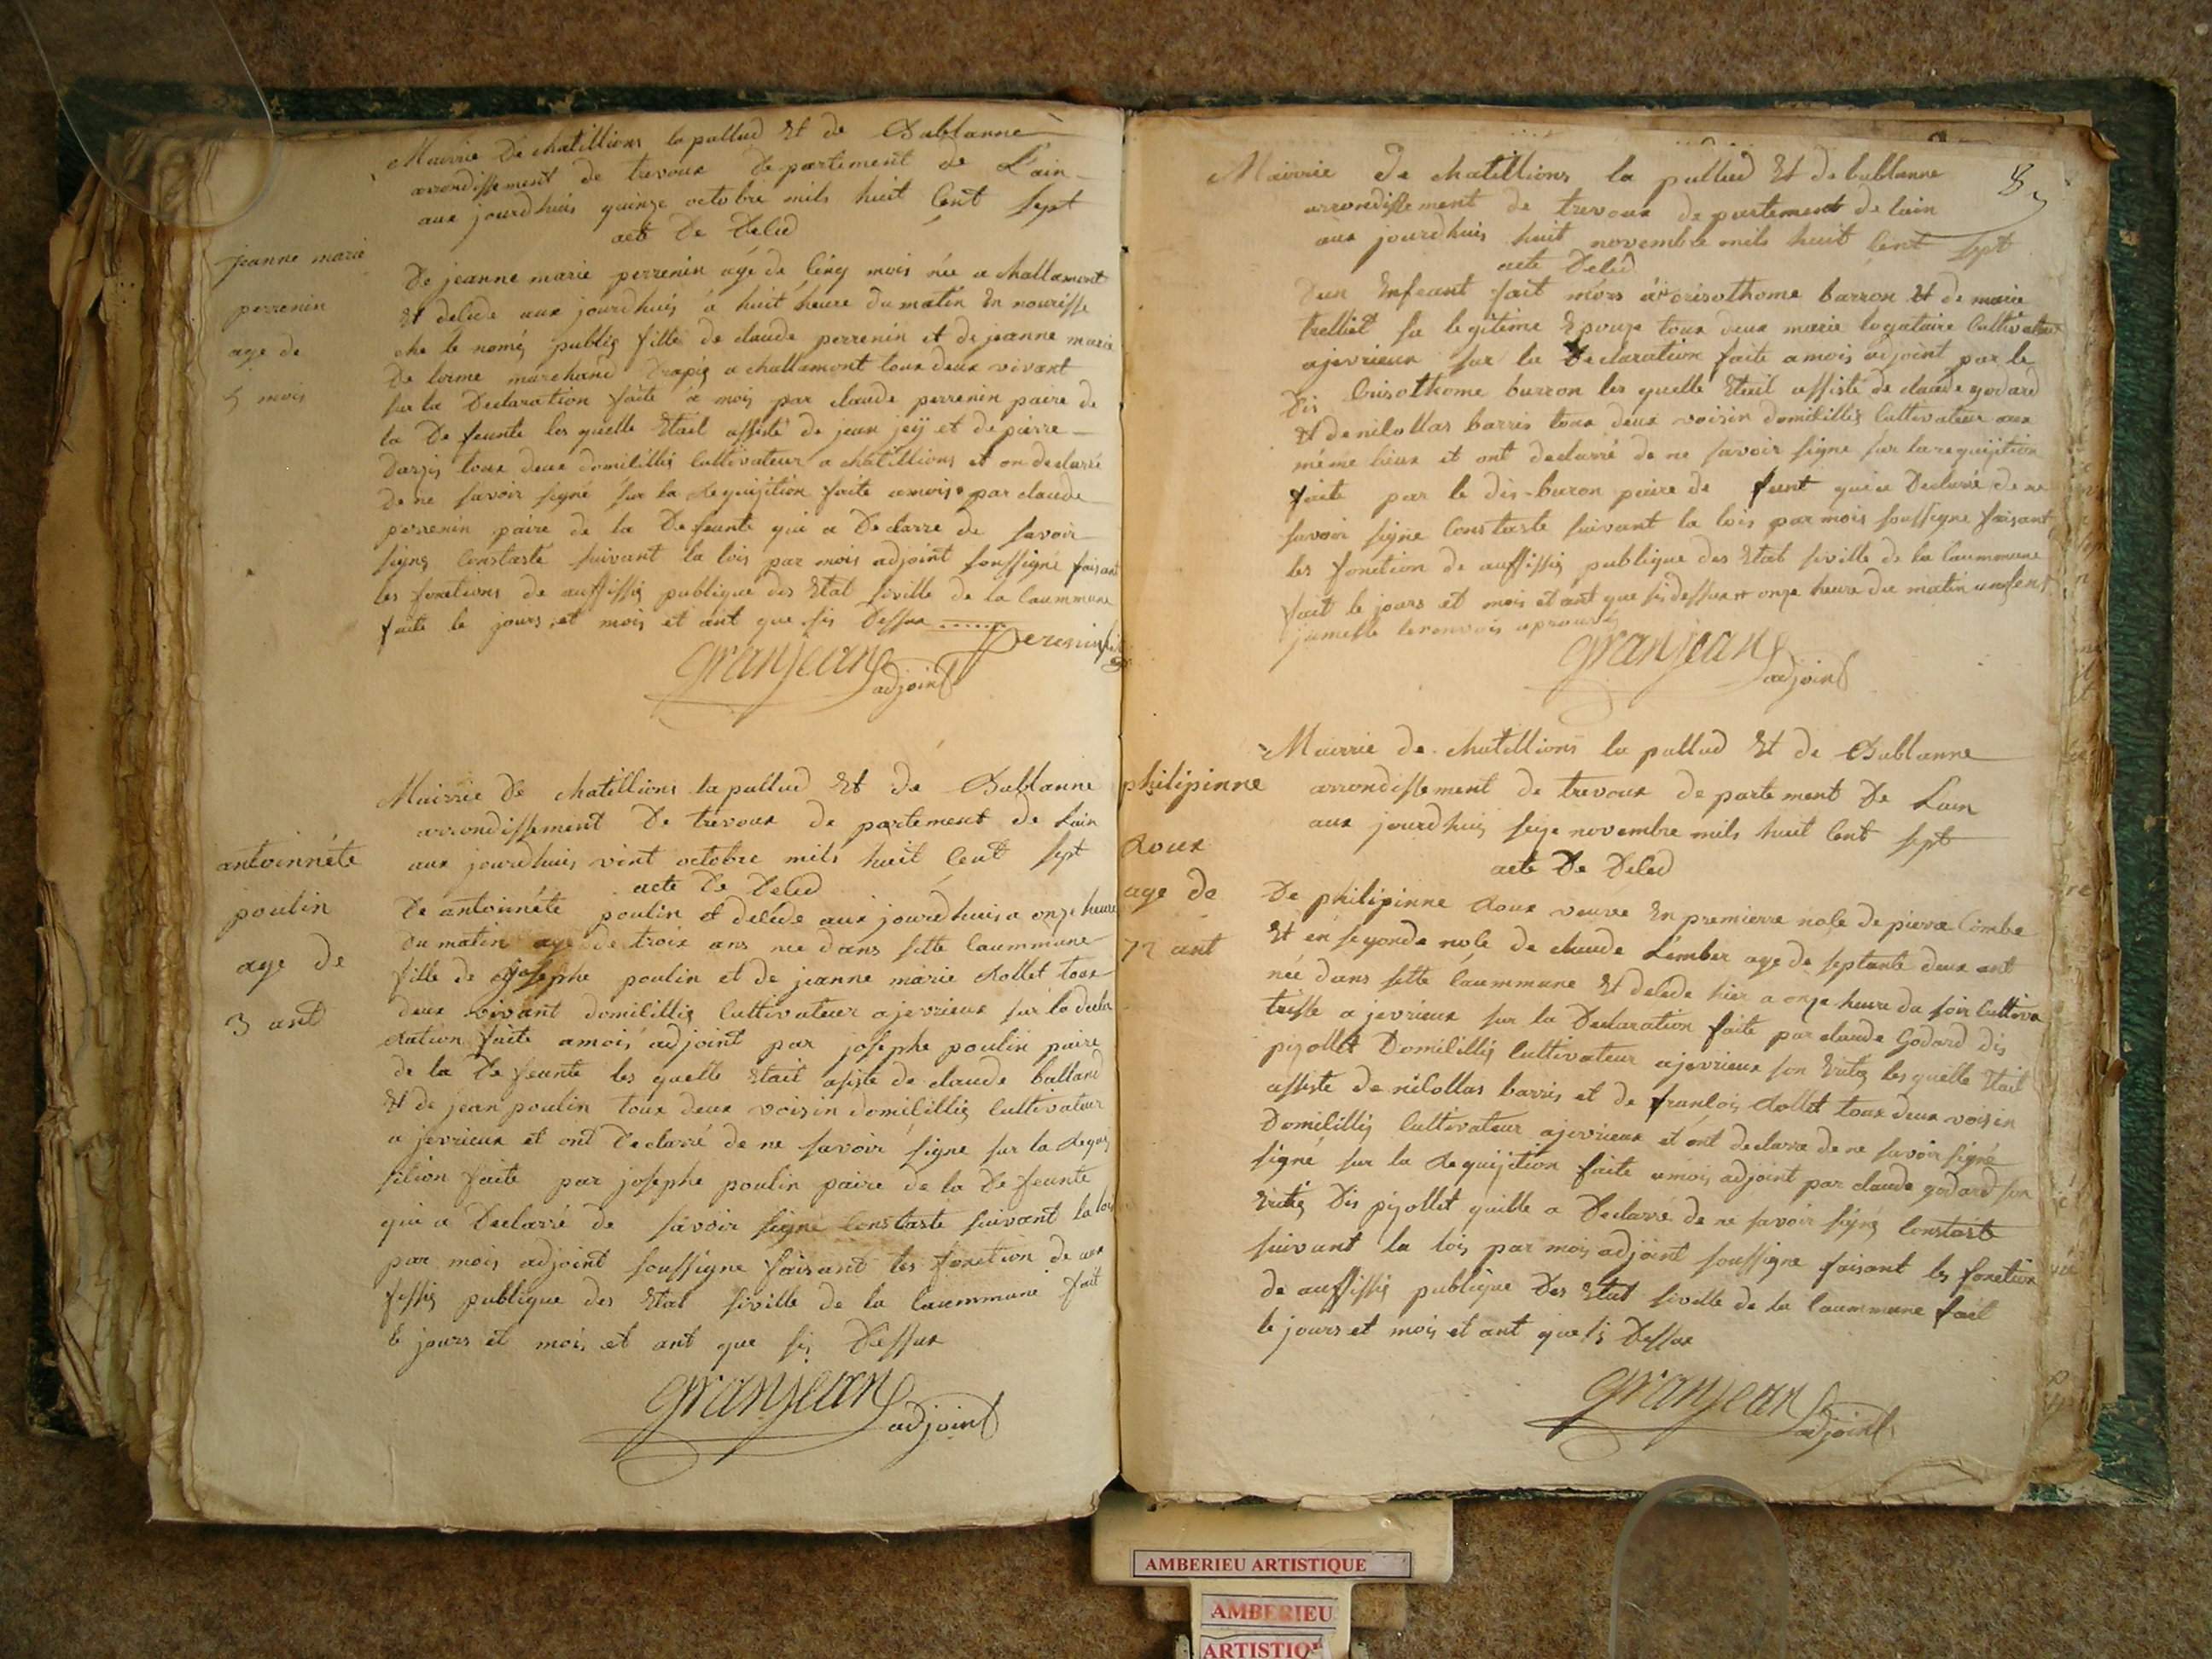 Mairrie De chatillions la pallud Et de Bublanne
arrondissement de trevoux departement de L'ain
aux jourdhuis quinze octobre mils huit Cent sept
acte De Deled
jeanne marie
perrenin
age de
5 mois
De jeanne marie perrenin agé de Cinq mois née a challamont
Et delede aux jourdhuis a huit heure du matin En nourisse
che le nomé publig fille de claude perrenin et de jeanne marie
De lorme marchand Drapig a challamont toux deux vivant
sur la Declaration faite a mois par claude perrenin paire de
la Defeunte les quelle Etait assisté de jean jeÿ et de pierre
toux deux domilillig Cultivateur a chatillions et on declarré
de ne savoir signé sur la dequijition faite amois par claude
perrenin paire de la Defeunte qui a Declarre de savoir
signe Constaste suivant la lois par mois adjoint soussigné faisant
les fonctions de auffissig publique des Etat siville de la Caummune
faite le jours et mois et ant que sis Dessux
perenin
granjean
adjoint
Mairrie De chatillions la pallud Et de Bublanne
arrondissement De trevoux de partement de Lain
aux jourdhuis vint octobre mils huit Cent sept
acte De Deled
antoinnéte
poulin
age de
3 ant
De antoinnéte poulin et deléde aux jourdhuis a onze heure
du matin age de troix ans née dans sette Caummune
fille de josephe poulin et de jeanne marie dollet toux
deux vivant domilillig Cultivateur a jevrieux sur la decla
dation faite amois adjoint par josephe poulin paire
de la Defeunte les quelle Etait asiste de claude balland
Et de jean poulin toux deux voisin domilillig Cultivateur
a jevrieux et ont Declarré de ne savoir signe sur la dequi
sition faite par josephe poulin paire de la Defeunte
qui a Declarré de savoir signé Constaste suivant la lois
par mois adjoint soussigne faisant les fonction de aux
fissig publique des Etat siville de la Caummune fait
le jours et mois et ant que sis Dessux
granjean
adjoint
Mairrie de chatillions la pallud Et de bublanne
arrondissement de trevoux departement de lain
aux jourdhuis huit novembre mils huit Cent sept
acte Deled
8
Dun Enfeant fait mors a Crisothome barron Et de marie
trelliet sa legitime Epouze toux deux marie logataire Cultivateur
ajevrieux sur la Declaration faite amois adjoint par le
Dis Crisothome burron les quelle Etait assisté de claude godard
Et de nilollas barris toux deux voisin domilillig Cultivateur aux
méme lieux et ont declarré de ne savoir signe sur la requijition
faite par le dis buron paire de funt qui a Declarré de ne
savoir signe Constaste suivant la lois par mois soussigne faisant
les fonction de auffissig publique des Etat siville de la Caummune
fait le jours et mois et ant que sis dessux a onze heure du matin
le renvois aprouvé
granjean
adjoint
Mairrie de chatillions la pallud Et de Bublanne
arrondissement de trevoux departement De Lain
aux jourdhuis seize novembre mils huit Cent sept
acte De Deled
philipinne
doux
age de
72 ant
De philipinne doux veuve En premierre nole de pierre Combe
Et én segonde nole de claude Lember age de septante deux ant
née dans sette Caummune Et delede hier a onze heure du soir Cultiva
trisse a jevrieux sur la Declaration faite par claude Godard dis
pizollet Domilillig Cultivateur ajevrieux son Eritig les quelle Etait
assiste de nilollas barris et de franlois dollet toux deux voisin
Domilillig Cultivateur ajevrieux et ont declarre de ne savoir signé
signé sur la dequijition faite amois adjoint par claude godard son
Eritig Dis pizollet quille a Declarré de ne savoir signé Constaste
suivant la lois par mois adjoint soussigne faisant les fonction
de auffissig publique Des Etat siville de la Caummune fait
le jours et mois et ant que sis Dessux
granjean
adjoint
AMBERIEU ARTISTIQUE
AMBERIEU
ARTISTIQU